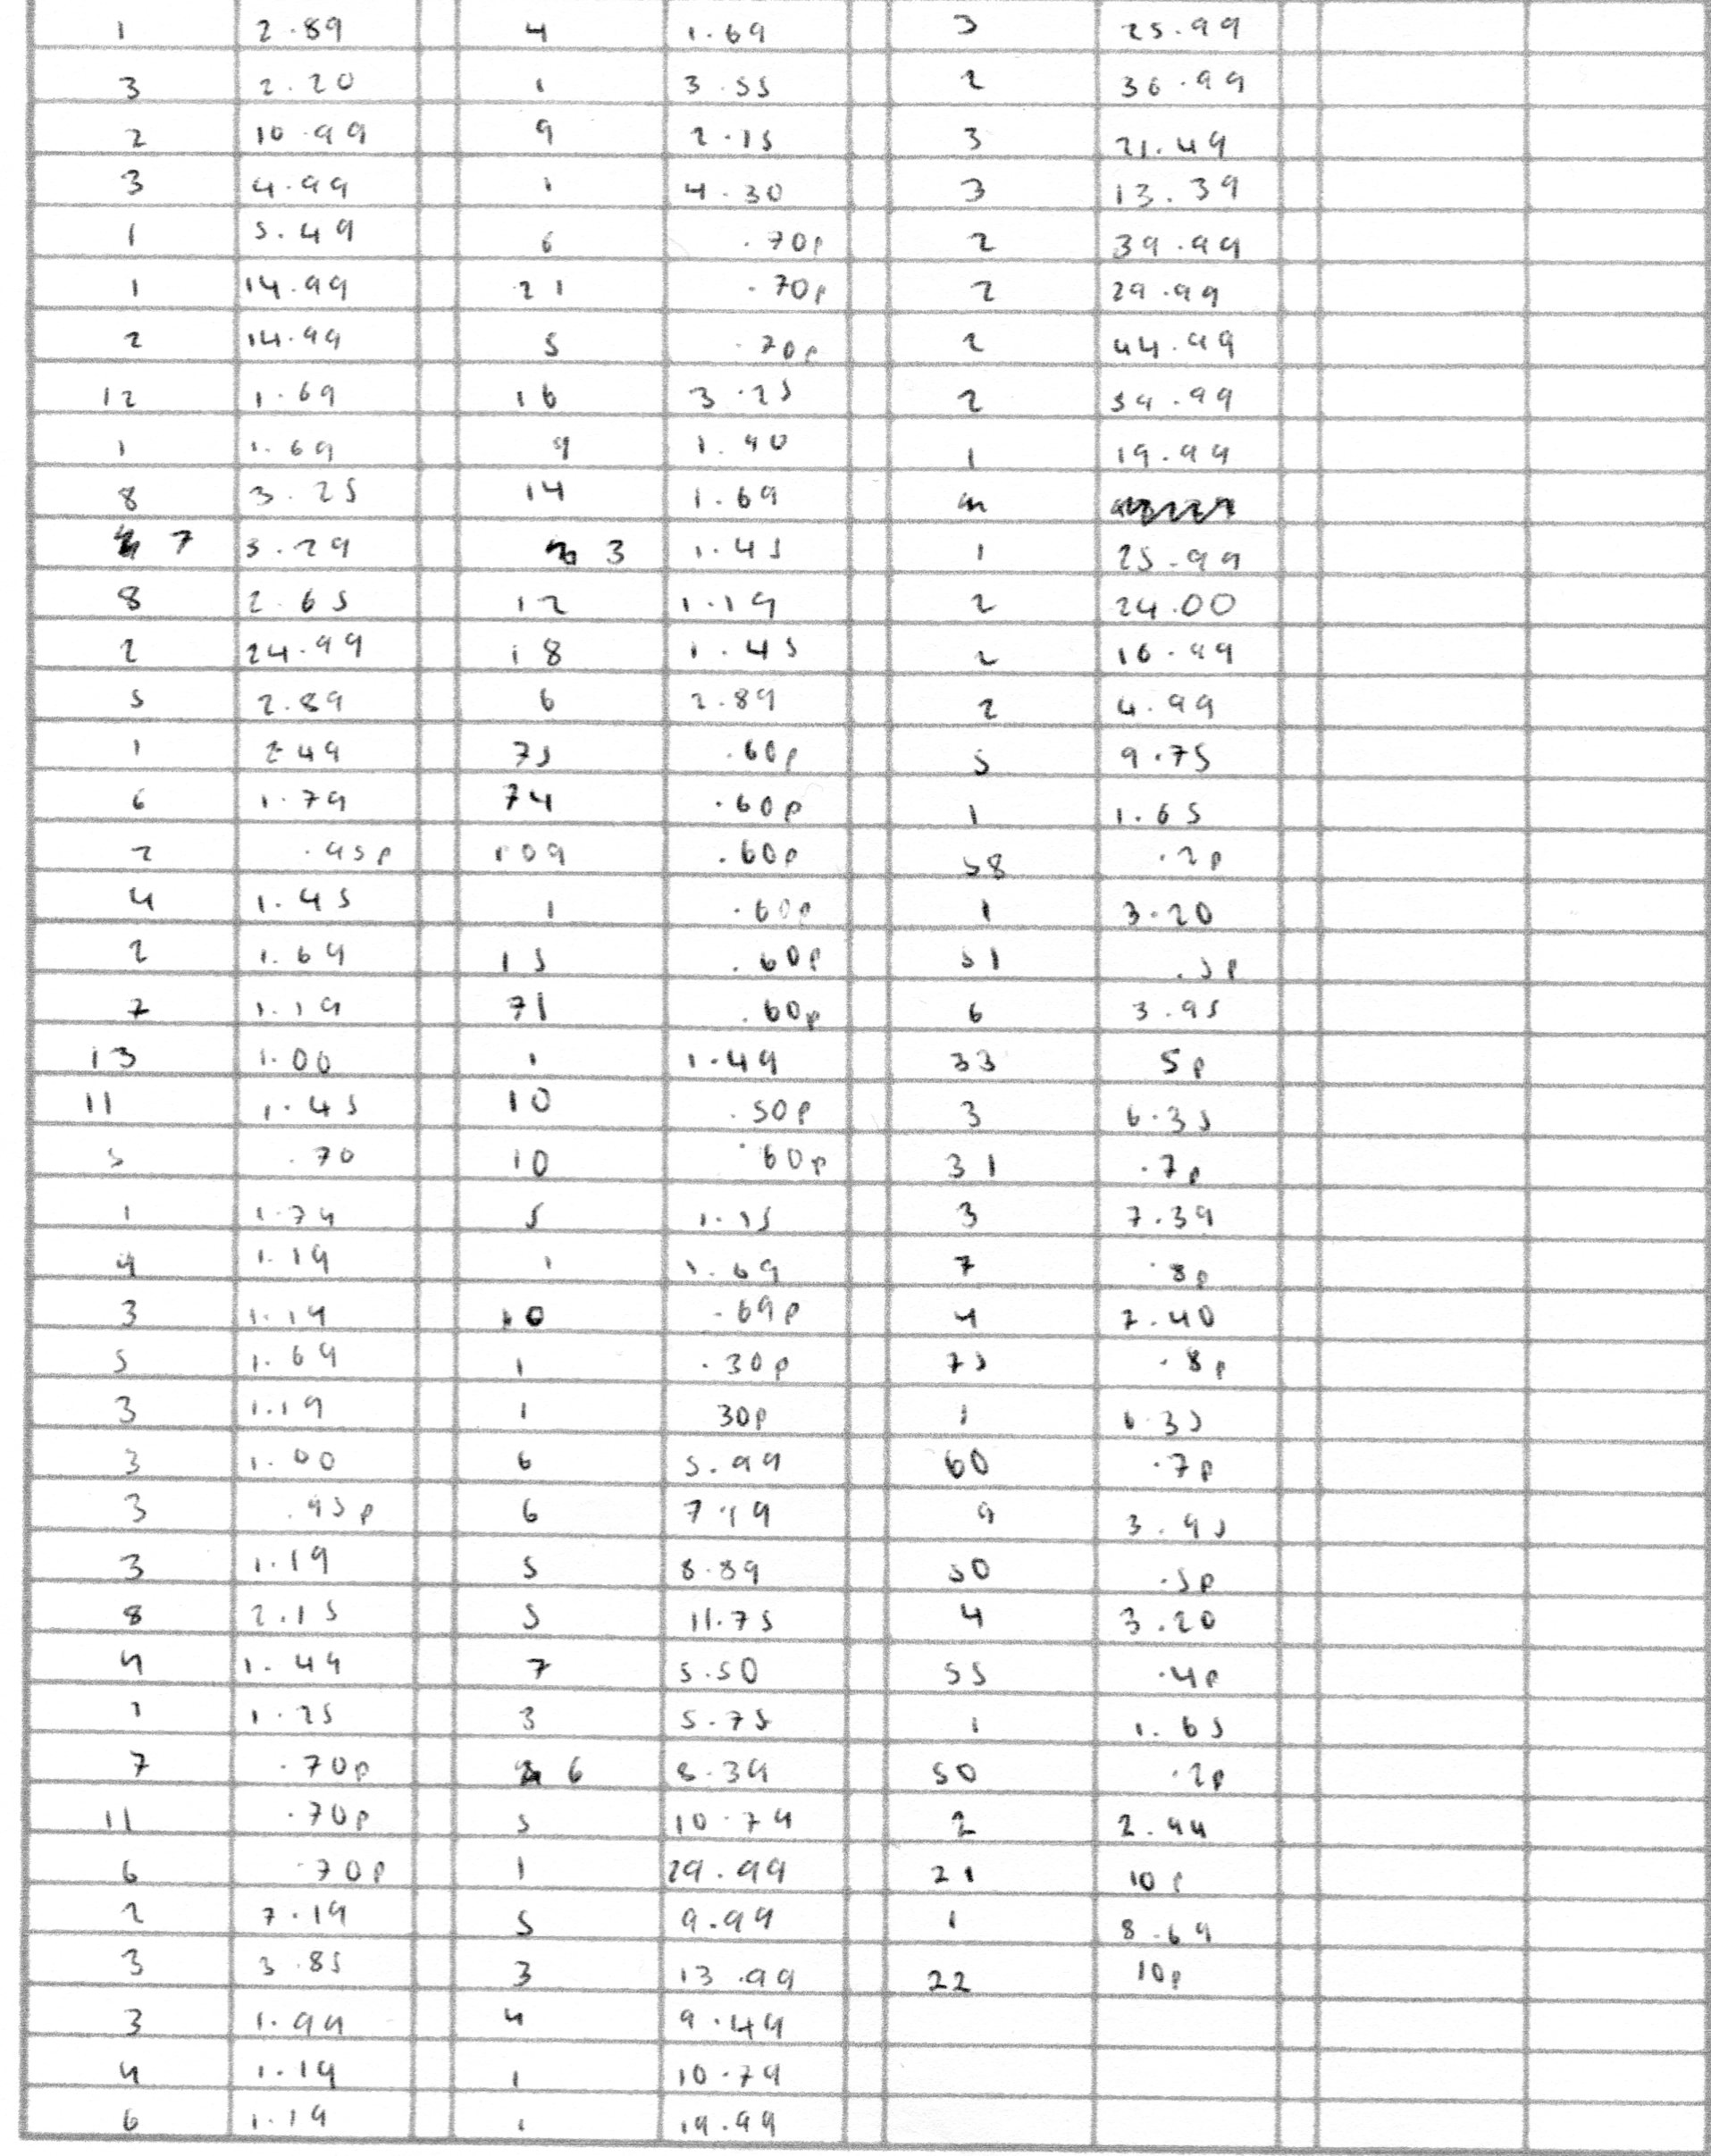 1 2.89 4 1.69 3 25.99
3 2.20 1 3.55 2 36.99
2 10.99 9 2.15 3 21.49
3 4.99 1 4.30 3 13.39
1 5.49 6 .70p 2 39.99
1 14.99 21 .70p 2 29.99
2 14.99 5 .70p 2 44.99
12 1.69 16 3.25 2 54.99
1 1.69 9 1.90 1 19.99
8 3.25 14 1.69
7 3.29 3 1.45 1 25.99
8 2.65 12 1.19 2 24.00
2 24.99 18 1.45 2 16.99
5 2.89 6 2.89 2 4.99
1 2.49 75 .60p 5 9.75
6 1.79 74 .60p 1 1.65
2 .95p 109 .60p 58 .2p
4 1.45 1 .60p 1 3.20
2 1.69 15 .60p 51 .5p
7 1.19 71 .60p 6 3.95
13 1.00 1 1.49 33 5p
11 1.45 10 .50p 3 6.35
5 .70 10 .60p 31 .7p
1 1.79 5 1.15 3 7.39
4 1.19 1 1.69 7 .8p
3 1.19 10 .69p 4 7.40
5 1.69 1 .30p 75 .8p
3 1.19 1 30p 1 6.35
3 1.00 6 5.99 60 .7p
3 .95p 6 7.19 9 3.95
3 1.19 5 8.89 50 .5p
8 2.15 5 11.75 4 3.20
4 1.49 7 5.50 55 .4p
1 1.25 3 5.75 1 1.65
7 .70p 6 8.39 50 .2p
11 .70p 5 10.79 2 2.44
6 .70p 1 29.99 21 10p
2 7.19 5 9.99 1 8.69
3 3.85 3 13.99 22 10p
3 1.99 4 9.49
4 1.19 1 10.79
6 1.19 1 19.99